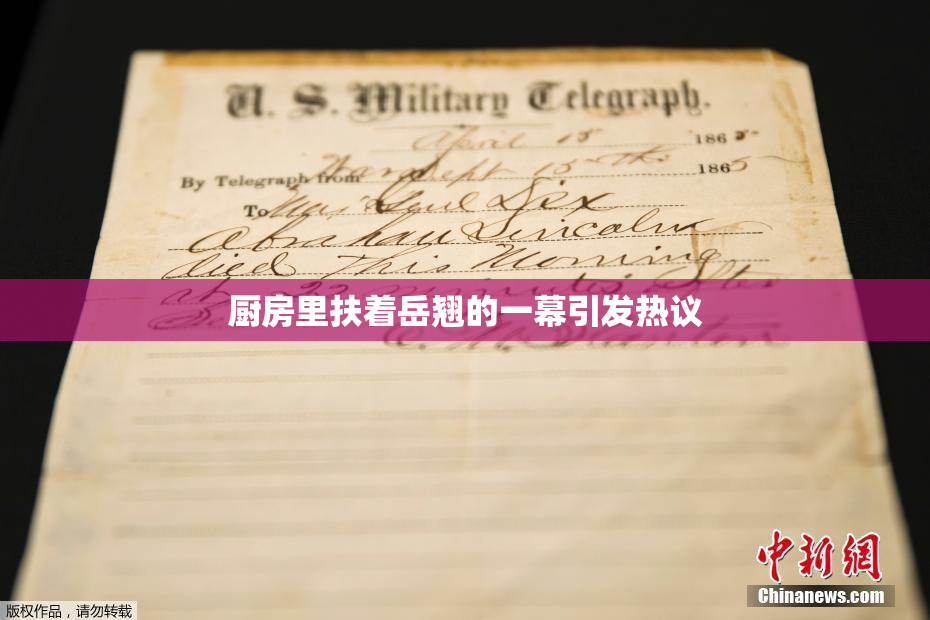 U. S. Military Telegraph.
April 15 1865
By Telegraph from War Dept 15th 1865
To Maj Genl Dix
Abraham Lincoln
died This Morning
at 22 minutes after
厨房里扶着岳翘的一幕引发热议
中新网
Chinanews.com
版权作品，请勿转载